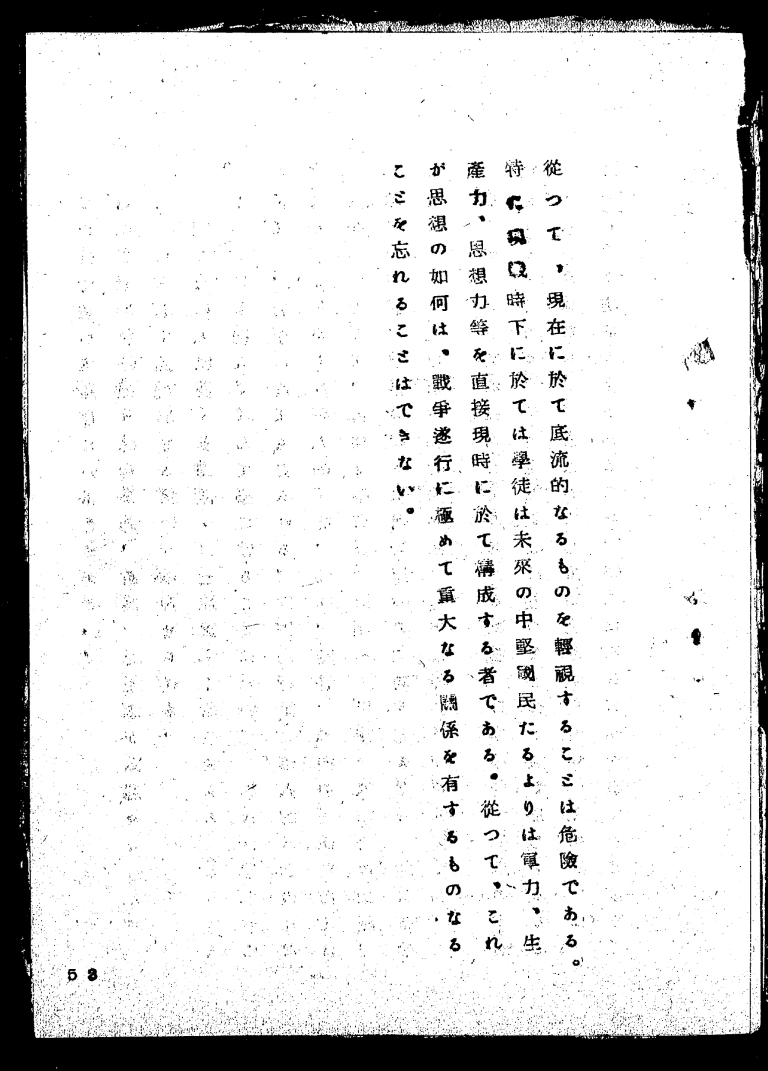 從つて、現在に於て底流的なるものを輕視することは危險である。
特に現戰時下に於ては學徒は未來の中堅國民たるよりは軍力、生
產力、思想力等を直接現時に於て構成する者である。從つて、これ
が思想の如何は、戰爭遂行に極めて重大なる關係を有するものなる
ことを忘れることはできない。
53